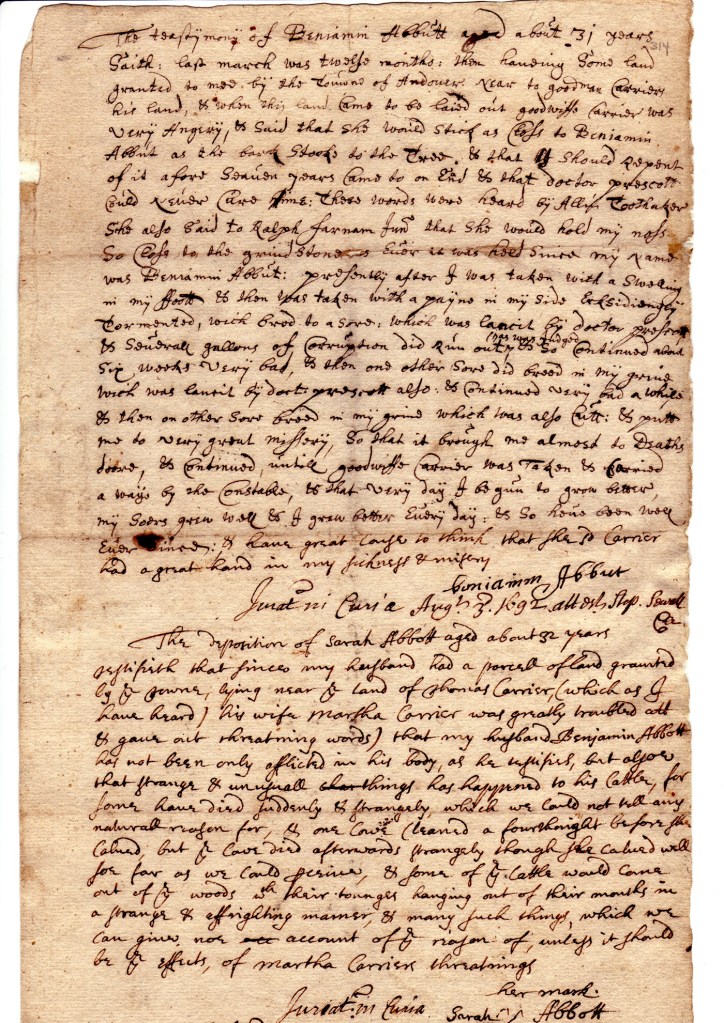 The teastymony of Beniamin Abbutt aged about 31 years
314
Saith: last march was twelfe months: then haueing Some land
granted to mee. by the Towne of Andouer Near to goodman Carriers
his land, & when this land Came to be laied out goodwiffe Carrier was
Very Angery, & Said that She would Stick as Closs to Beniamin
Abbut as the bark Stooke to the Tree. & that I Should Repent
of it afore Seauen years Came to an End & that doctor prescott
Could Neuer Cure mee: These words were heard by Allin Toothaker
She also Said to Ralph farnam Junr that She would hold my noss
So Closs to the grindstone as Euer it was held Since my Name
was Beniamin Abbut: presently after I was taken with a Swelling
in my ffoott & then was taken with a payne in my Side Exksidiengly
Tormented, wich bred to a Sore: which was lancit by doctor prescott
& Seuerall gallons of Corruption did Run out as was Judged & So Continued about
Six weeks Very bad, & then one other Sore did breed in my grine
wich was lancit by doct: prescott also: & Continued Very bad a while
& then on other Sore breed in my grine which was also Cutt: & putt
me to Very great missery, So that it brough me almost to Deaths
doore, & Continued, untill goodwiffe Carrier was Taken & Carried
a waye by the Constable, & that Very day I begun to grow better,
my Soers grew well & I grew better Euery day: & So haue been well
Euer Since: & haue great Cause to think that She sd Carrier
had a great hand in my Sickness & misery
beniamin Abbut
Jurat in Curia Augst 3. 1692. attests Step. Sewall
Cler
The deposition of Sarah Abbott aged about 32 years
testifieth that since my husband had a parcell of land graunted
by ye towne, lying near ye land of Thomas Carrier, (which as I
haue heard) his wife Martha Carrier was greatly troubled att
& gaue out threatning words) that my husband Benjamin Abbott
has not been only afflicted in his body, as he testifies, but alsoe
that strange & unusuall things has happened to his Cattle, for
some haue died suddenly & strangely, which we could not tell any
naturall reason for, & one Cowe Cleaned a fourthnight before she
Calued, but ye Cowe died afterwards strangely though she Calued well
soe far as we could perciue, & some of ye Cattle would come
out of ye woods wth their tounges hanging out of their mouths in
a strange & affrighting maner, & many such things, which we
can giue noe account of ye reason of, unless it should
be ye effects, of Martha Carriers threatnings
her mark.
Jurat in Curia Sarah Abbott